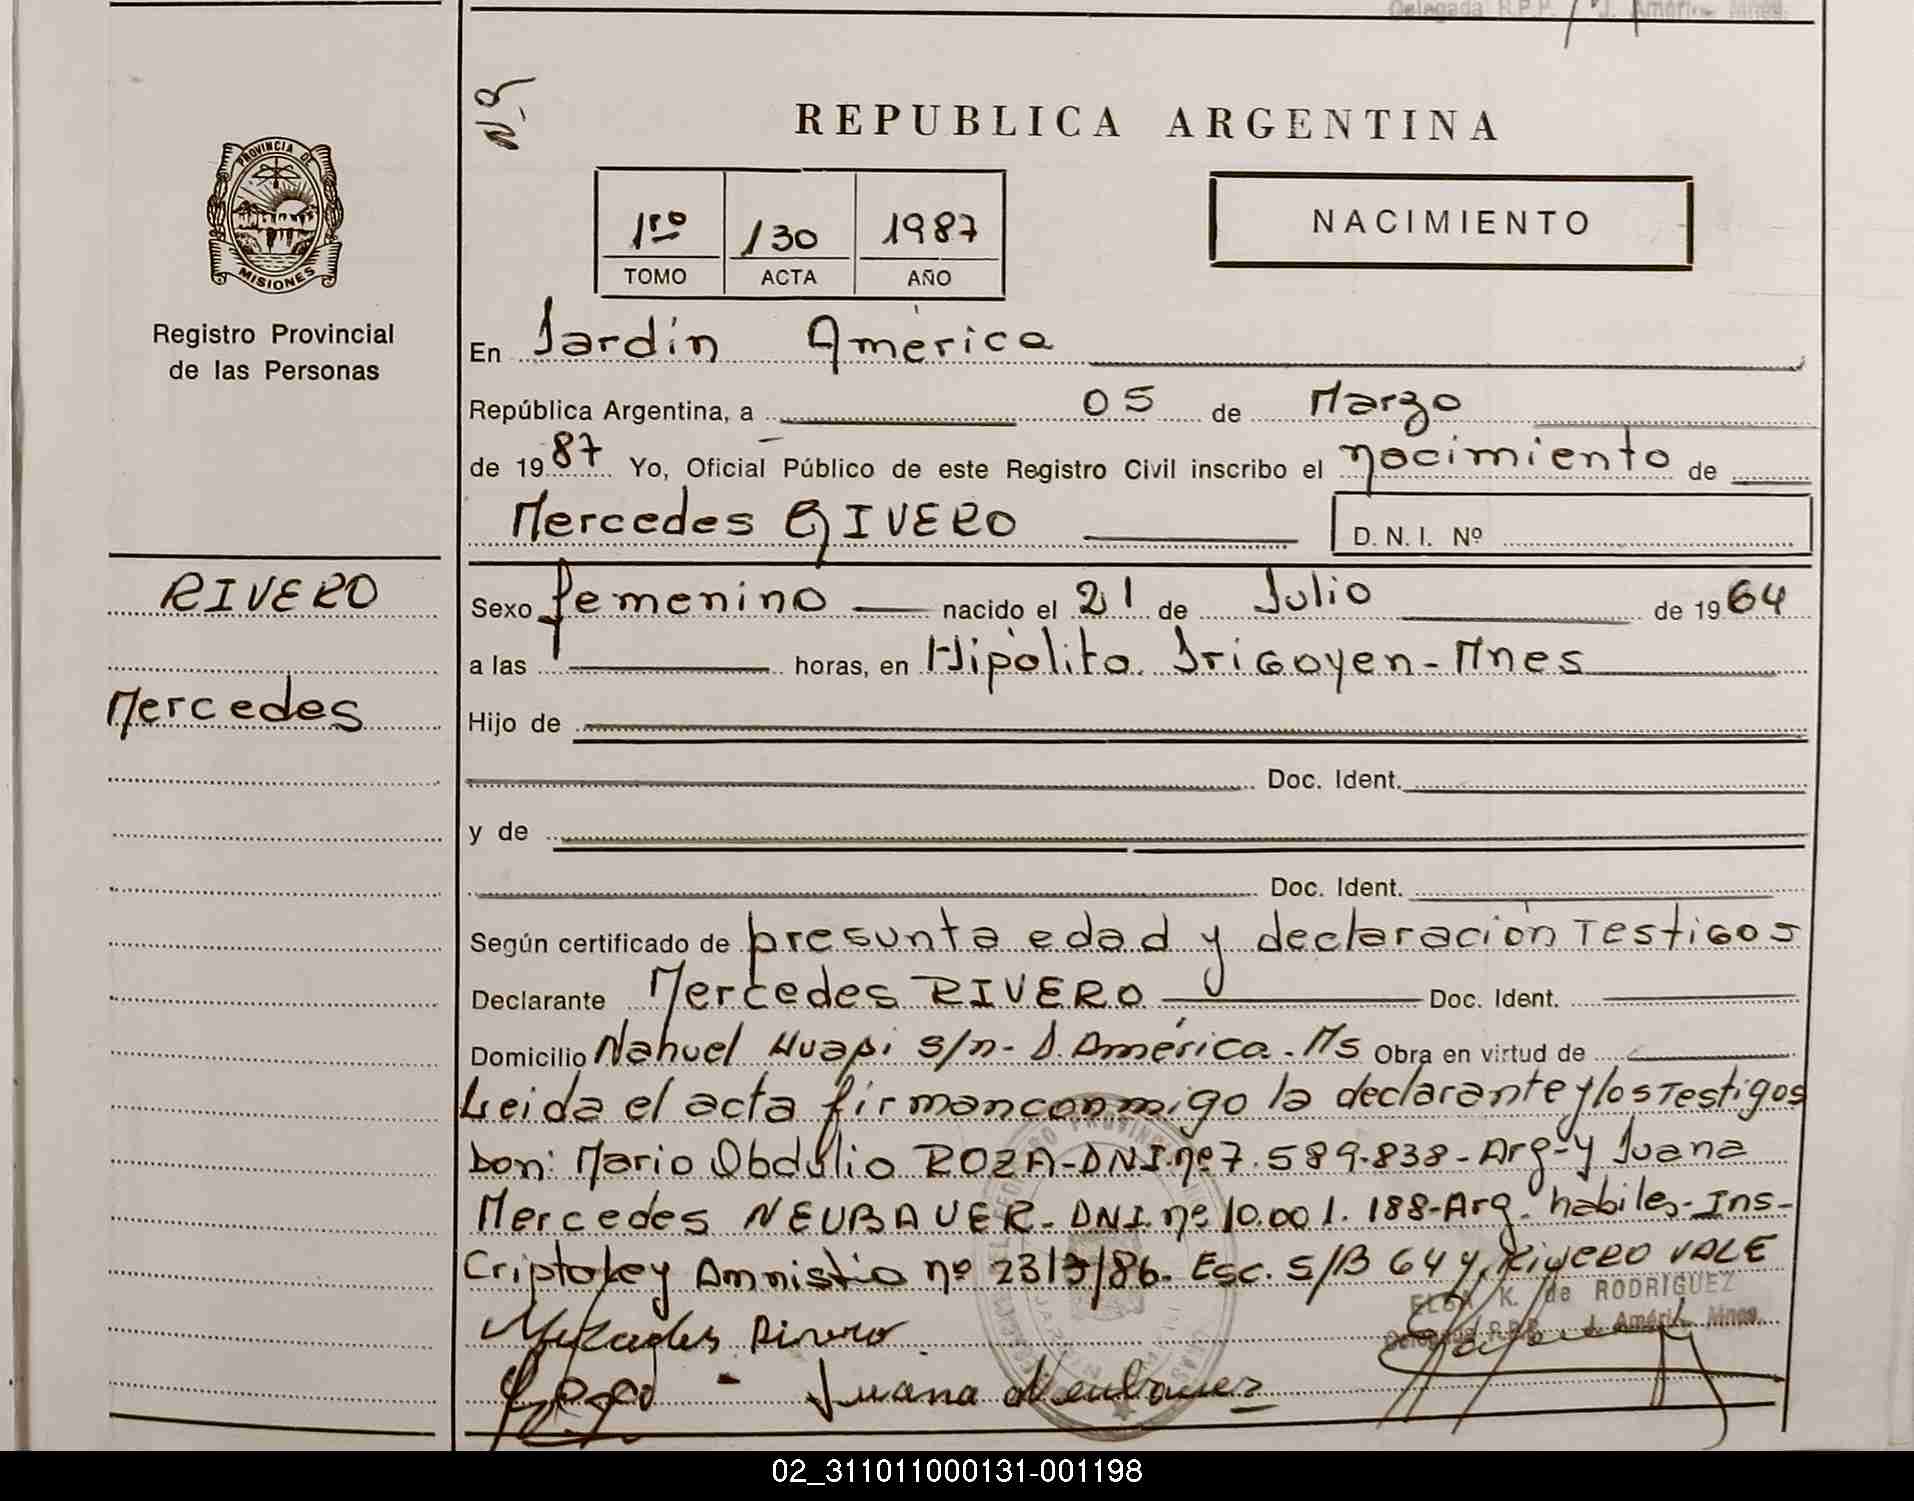 Delegada R.P.P. J. Améric Mnes.
N.º
REPUBLICA ARGENTINA
1ro 130 1987
TOMO ACTA AÑO
NACIMIENTO
PROVINCIA DE
MISIONES
Registro Provincial
de las Personas
En Jardín América
República Argentina, a 05 de Marzo
de 1987 Yo, Oficial Público de este Registro Civil inscribo el nacimiento de
Mercedes RIVERO D. N. I. Nº
RIVERO
Mercedes
Sexo femenino nacido el 21 de Julio de 1964
a las horas, en Hipólito Irigoyen - Mnes
Hijo de
Doc. Ident.
y de
Doc. Ident.
Según certificado de presunta edad y declaración Testigos
Declarante Mercedes RIVERO Doc. Ident.
Domicilio Nahuel Huapi s/n - J. América - Ms Obra en virtud de
Leida el acta firman conmigo la declarante y los Testigos
Don: Mario Obdulio ROZA - DNI. nº 7.589.838 - Arg - y Juana
Mercedes NEUBAUER - DNI. nº 10.001.188 - Arg. habiles - Ins-
cripto Ley Amnistia nº 2313/86. Esc. S/B 64 y RIVERO VALE
ELSA K. de RODRIGUEZ
Delegada R.P.P. J. Améric Mnes.
Mercedes Rivero
Juana Neubauer
02_311011000131-001198